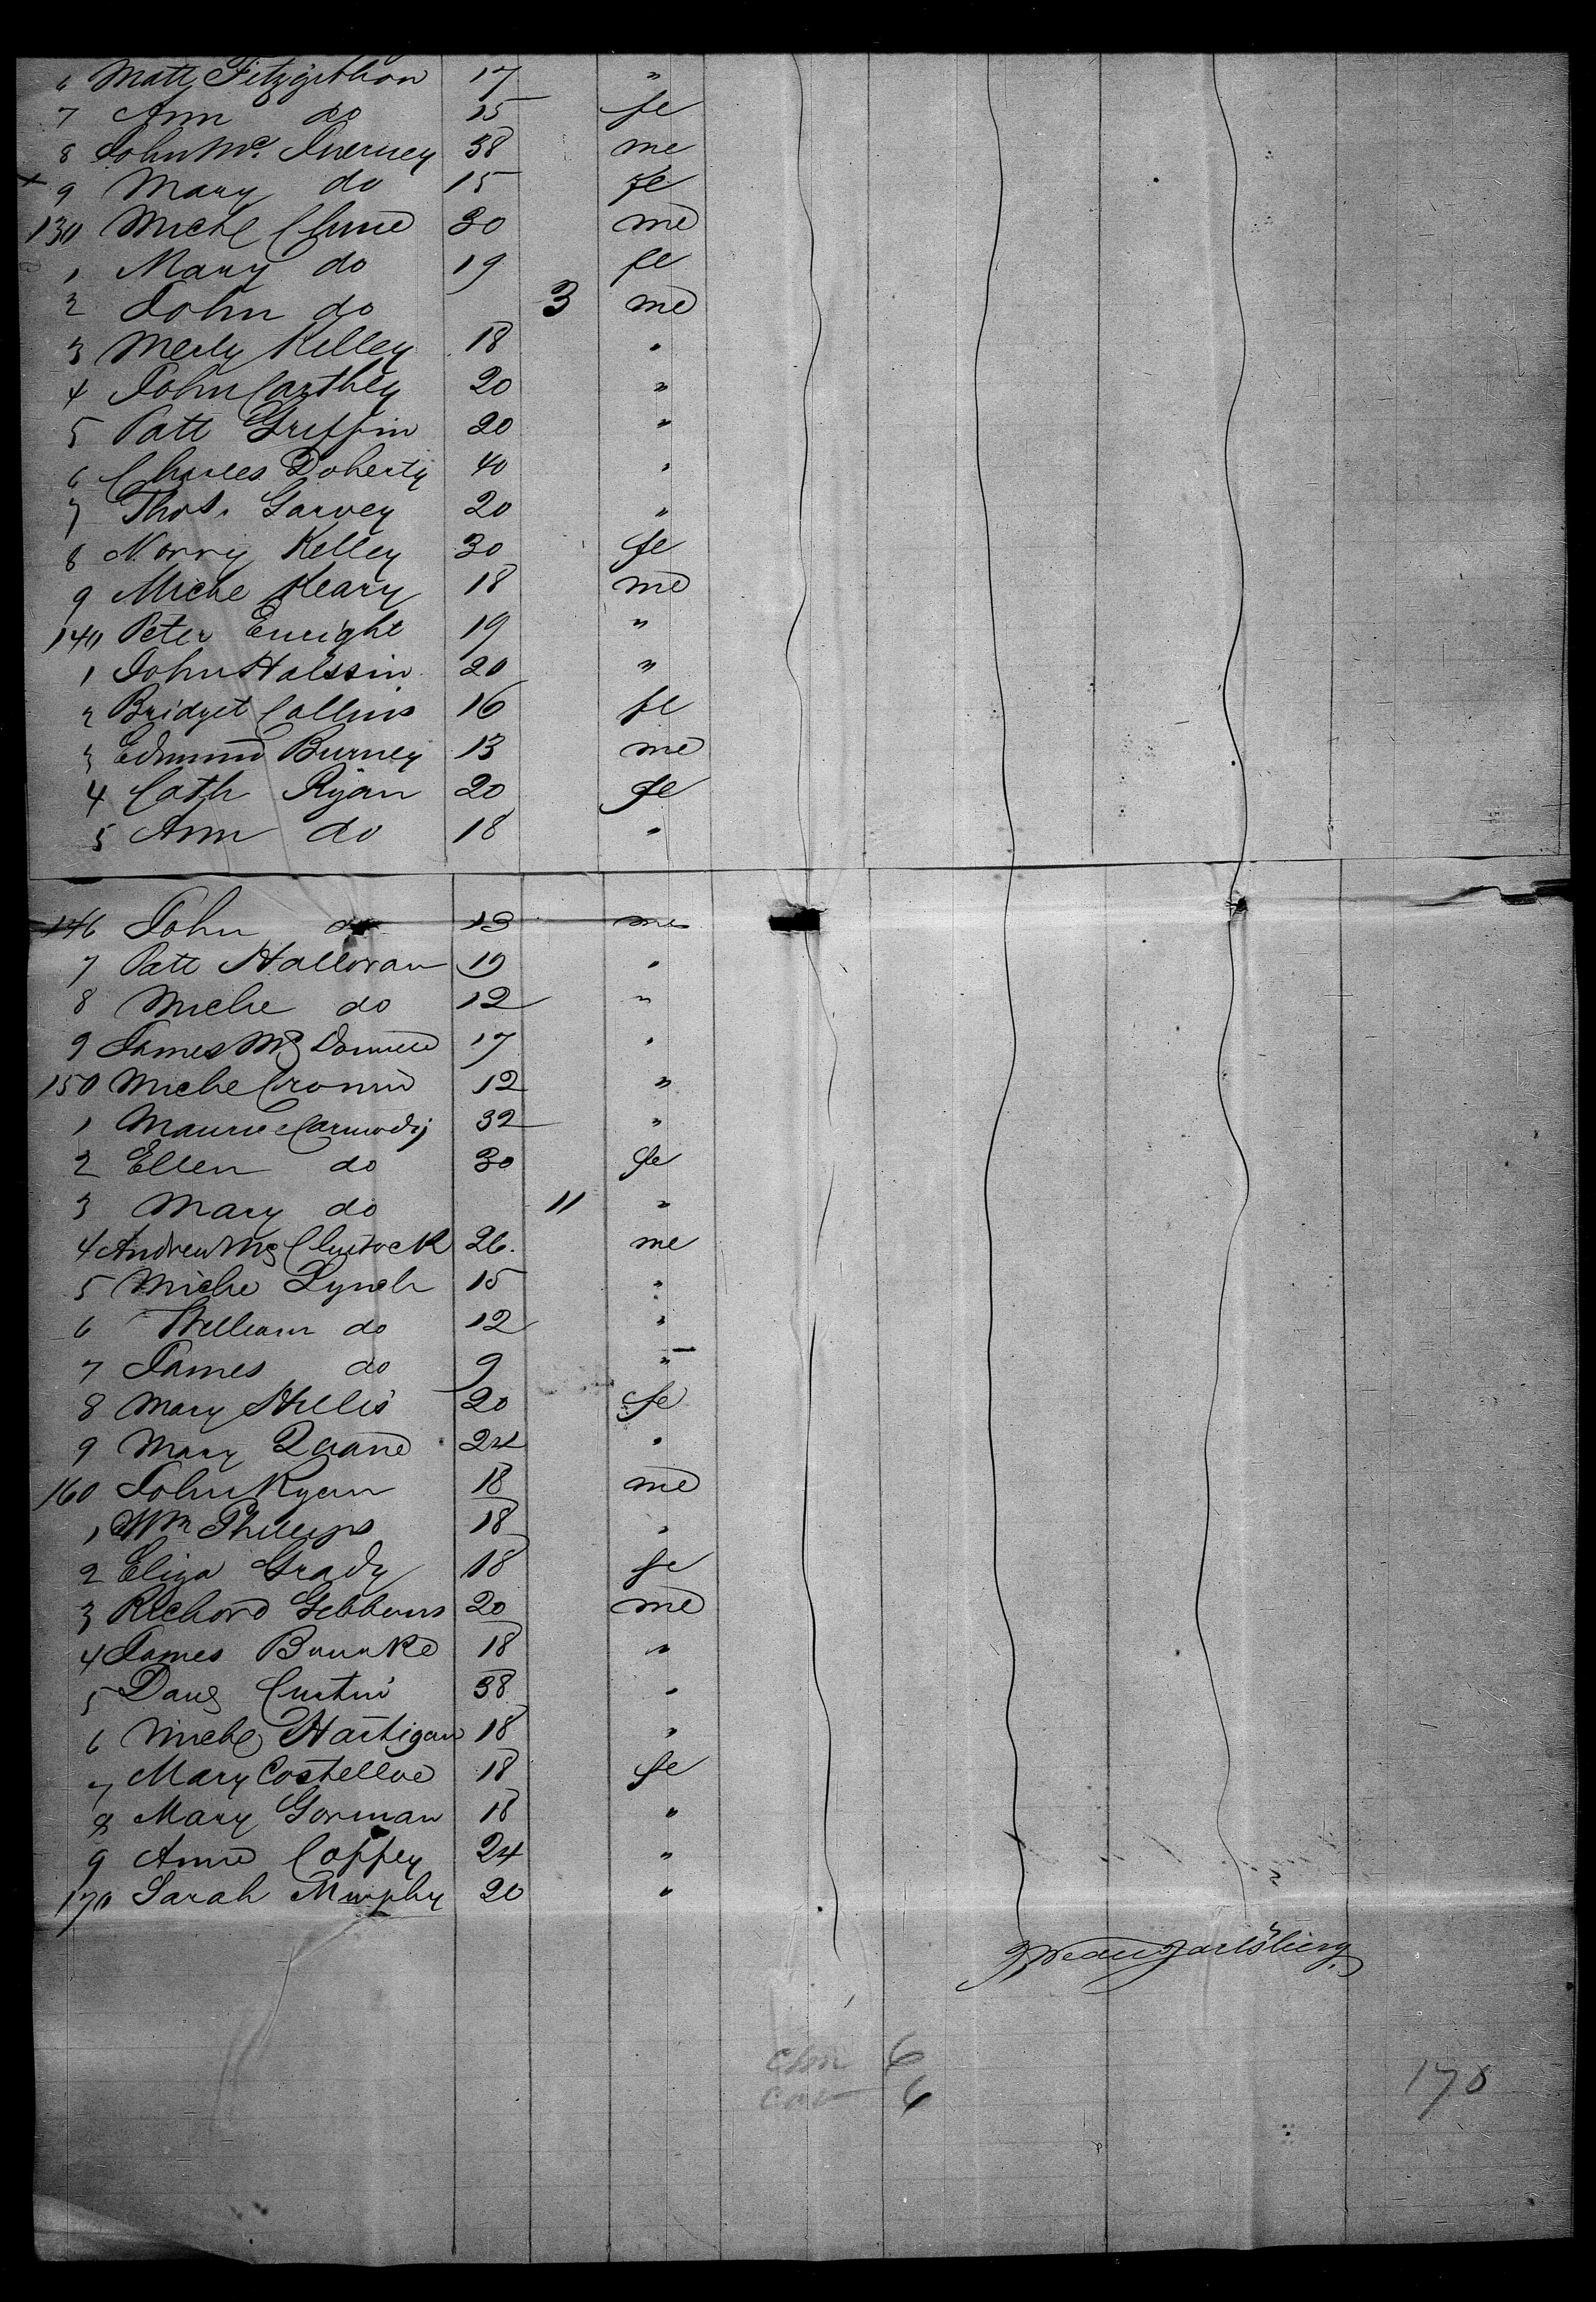 6 Matt Fitzgibbon 17 "
7 Ann do 15 fe
8 John Mc Inerney 38 me
+ 9 Mary do 15 fe
130 Michl Clune 30 me
1 Mary do 19 fe
2 John do 3 me
3 Kelley 18 "
4 John Carthey 20 "
5 Patt Griffin 20 "
6 Charles Doherty 40 "
7 Thos. Garvey 20 "
8 Norry Kelley 30 fe
9 Michl Keary 18 me
140 Peter Enright 19 "
1 John Halssin 20 "
2 Bridget Collins 16 fe
3 Edmund Burney 13 me
4 Cath Ryan 20 fe
5 Ann do 18 "
146 John do 13 me
7 Patt Halloran 19 "
8 Michl do 12 "
9 James Mc Donnell 17 "
150 Michl Cronin 12 "
1 Maurice Carmody 32 "
2 Ellen do 30 fe
3 Mary do 11 "
4 Andrew Mc 26. me
5 Michl Lynch 15 "
6 William do 12 "
7 James do 9 "
8 Mary Hillis 20 fe
9 Mary Quane 24 "
160 John Ryan 18 me
1 Wm Phillips 18 "
2 Eliza Grady 18 fe
3 Richard Gibbons 20 me
4 James Bourke 18 "
5 Danl Curtin 38 "
6 Michl Hartigan 18 "
7 Mary Costelloe 18 fe
8 Mary Gorman 18 "
9 Anne Coffey 24 "
170 Sarah Murphy 20 "
6
6
178